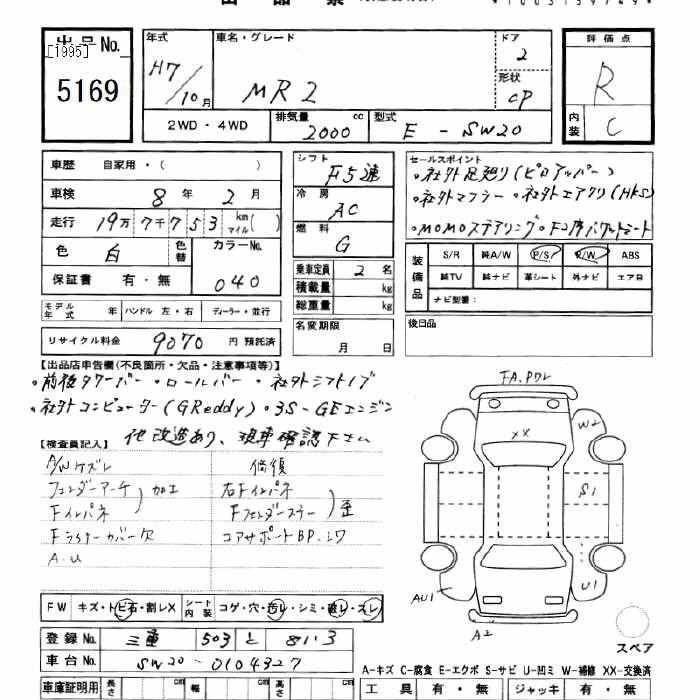 出品No.
[1995]
5169
年式 車名・グレード ドア
H7/10月 MR2 2
形状
CP
2WD・4WD 排気量 2000 cc 型式 E-SW20
評価点
R
内装 C
車歴 自家用・( )
車検 8年 2月
走行 19万7千753 km マイル( )
色 白 色替 カラーNo.
保証書 有・無 040
モデル年式 年 ハンドル 左・右 ディーラー・並行
リサイクル料金 9070 円 預託済
シフト F5速
冷房 AC
燃料 G
乗車定員 2 名
積載量 kg
総重量 kg
名変期限
月 日
セールスポイント
・社外足廻り(ピロアッパー)
・社外マフラー ・社外エアクリ(HKS)
・MOMOステアリング・F2席バケットシート
装備品 S/R 純A/W P/S P/W ABS
純TV 純ナビ 革シート 外ナビ エアB
ナビ型番:
後日品
【出品店申告欄(不良箇所・欠品・注意事項等)】
・前後タワーバー ・ロールバー ・社外シフトノブ
・社外コンピューター(GReddy)・3S-GEエンジン
他改造あり、現車確認下さい
【検査員記入】
A/Wケズレ 修復
フェンダーアーチ 加工 右Fインパネ
Fインパネ Fフェンダーステー 歪
Fライナーカバー欠 コアサポートBP.シワ
A.U
FW キズ・トビ石・割レX シート内装 コゲ・穴・汚レ・シミ・破レ・スレ
登録No. 三重 503 と 81-3
車台No. SW20-0104327
車庫証明用 長さ cm 幅 cm 高さ cm
FA.Pワレ
XX
W2
S1
U1
AU1
A2
スペア
A-キズ C-腐食 E-エクボ S-サビ U-凹ミ W-補修 XX-交換済
工具 有・無 ジャッキ 有・無